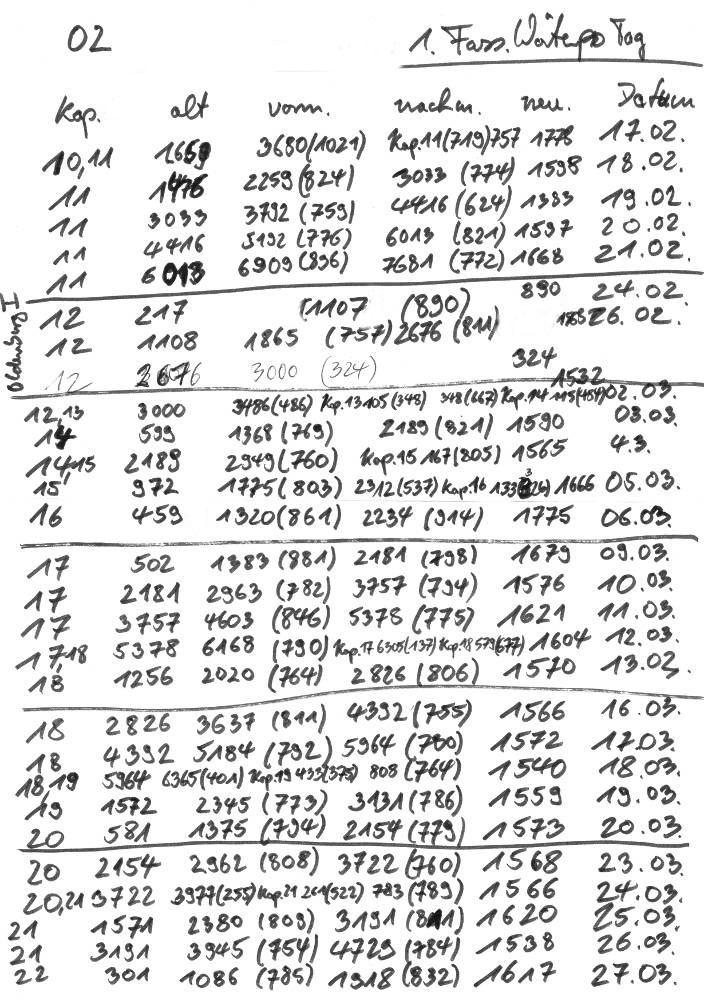 02 1. Fass. Wörter pro Tag
Kap. alt vorm. nachm. neu. Datum
10,11 1659 3680(1021) Kap.11(719)757 1778 17.02.
11 1476 2259(824) 3033 (774) 1598 18.02.
11 3033 3792 (759) 4416 (624) 1383 19.02.
11 4416 5192 (776) 6013 (821) 1597 20.02.
11 6013 6909 (896) 7681 (772) 1668 21.02.
12 217 (1107 (890) 890 24.02.
12 1108 1865 (757) 2676 (811) 1568 26.02.
Oldenburg II
12 2676 3000 (324) 324
12,13 3000 3486(486) Kap.13 105(348) 348(667) Kap.14 115(454) 1532 02.03.
14 599 1368 (769) 2189 (821) 1590 03.03.
14,15 2189 2949(760) Kap.15 167(805) 1565 4.3.
15, 972 1775(803) 2312(537) Kap.16 133(326) 1666 05.03.
16 459 1320(861) 2234 (914) 1775 06.03.
17 502 1383 (881) 2181 (798) 1679 09.03.
17 2181 2963 (782) 3757 (794) 1576 10.03.
17 3757 4603 (846) 5378 (775) 1621 11.03.
17,18 5378 6168 (790) Kap.17 6305(137) Kap.18 579(677) 1604 12.03.
18 1256 2020 (764) 2826 (806) 1570 13.02.
18 2826 3637 (811) 4392 (755) 1566 16.03.
18 4392 5184 (792) 5964 (780) 1572 17.03.
18,19 5964 6365(401) Kap.19 433(375) 808 (764) 1540 18.03.
19 1572 2345 (773) 3131 (786) 1559 19.03.
20 581 1375 (794) 2154 (779) 1573 20.03.
20 2154 2962 (808) 3722 (760) 1568 23.03.
20,21 3722 3977(255) Kap.21 261(522) 783 (789) 1566 24.03.
21 1571 2380 (809) 3191 (811) 1620 25.03.
21 3191 3945 (754) 4729 (784) 1538 26.03.
22 301 1086 (785) 1918 (832) 1617 27.03.